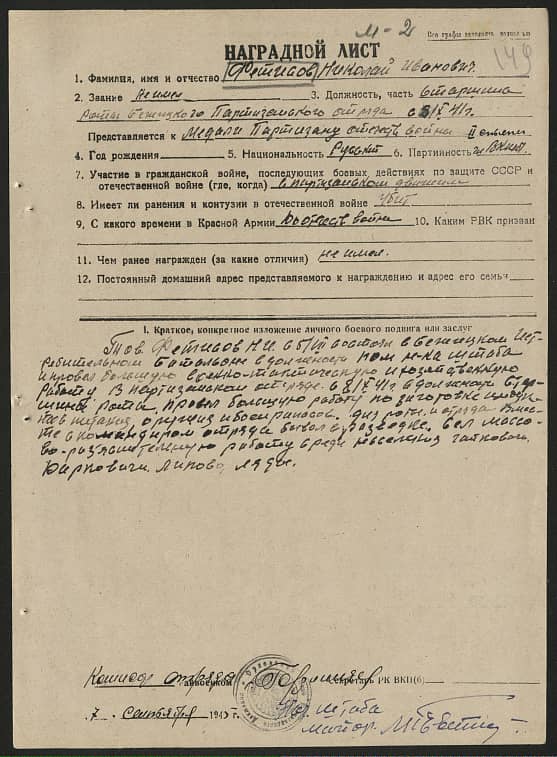 м-2
Все графы заполнять полностью
149
НАГРАДНОЙ ЛИСТ
1. Фамилия, имя и отчество Фетисов Николай Иванович.
2. Звание не имел 3. Должность, часть старшина
роты Партизанского отряда с
Представляется к Медали Партизану отечеств войны II степени
4. Год рождения 5. Национальность Русский 6. Партийность ВКП(б)
7. Участие в гражданской войне, последующих боевых действиях по защите СССР и
отечественной войне (где, когда) в партизанском движении
8. Имеет ли ранения и контузии в отечественной войне убит
9. С какого времени в Красной Армии в отечеств войне 10. Каким РВК призван
11. Чем ранее награжден (за какие отличия) не имел.
12. Постоянный домашний адрес представляемого к награждению и адрес его семьи
I. Краткое, конкретное изложение личного боевого подвига или заслуг
Тов. Фетисов Н.И. с состоял в
батальоне в должности пом. н-ка штаба
и провел большую военно-тактическую и хозяйственную
работу. В партизанском отряде с в должности стар-
шины роты. Провел большую работу по заготовке продук-
тов питания, оружия и боеприпасов для роты и отряда. Вмес-
те с командиром отряда бывал в разведке. Вел массо-
во-разъяснительную работу среди населения
Липово,
Командир отряда Секретарь РК ВКП(б)
7 сентября 194 г. штаба
майор